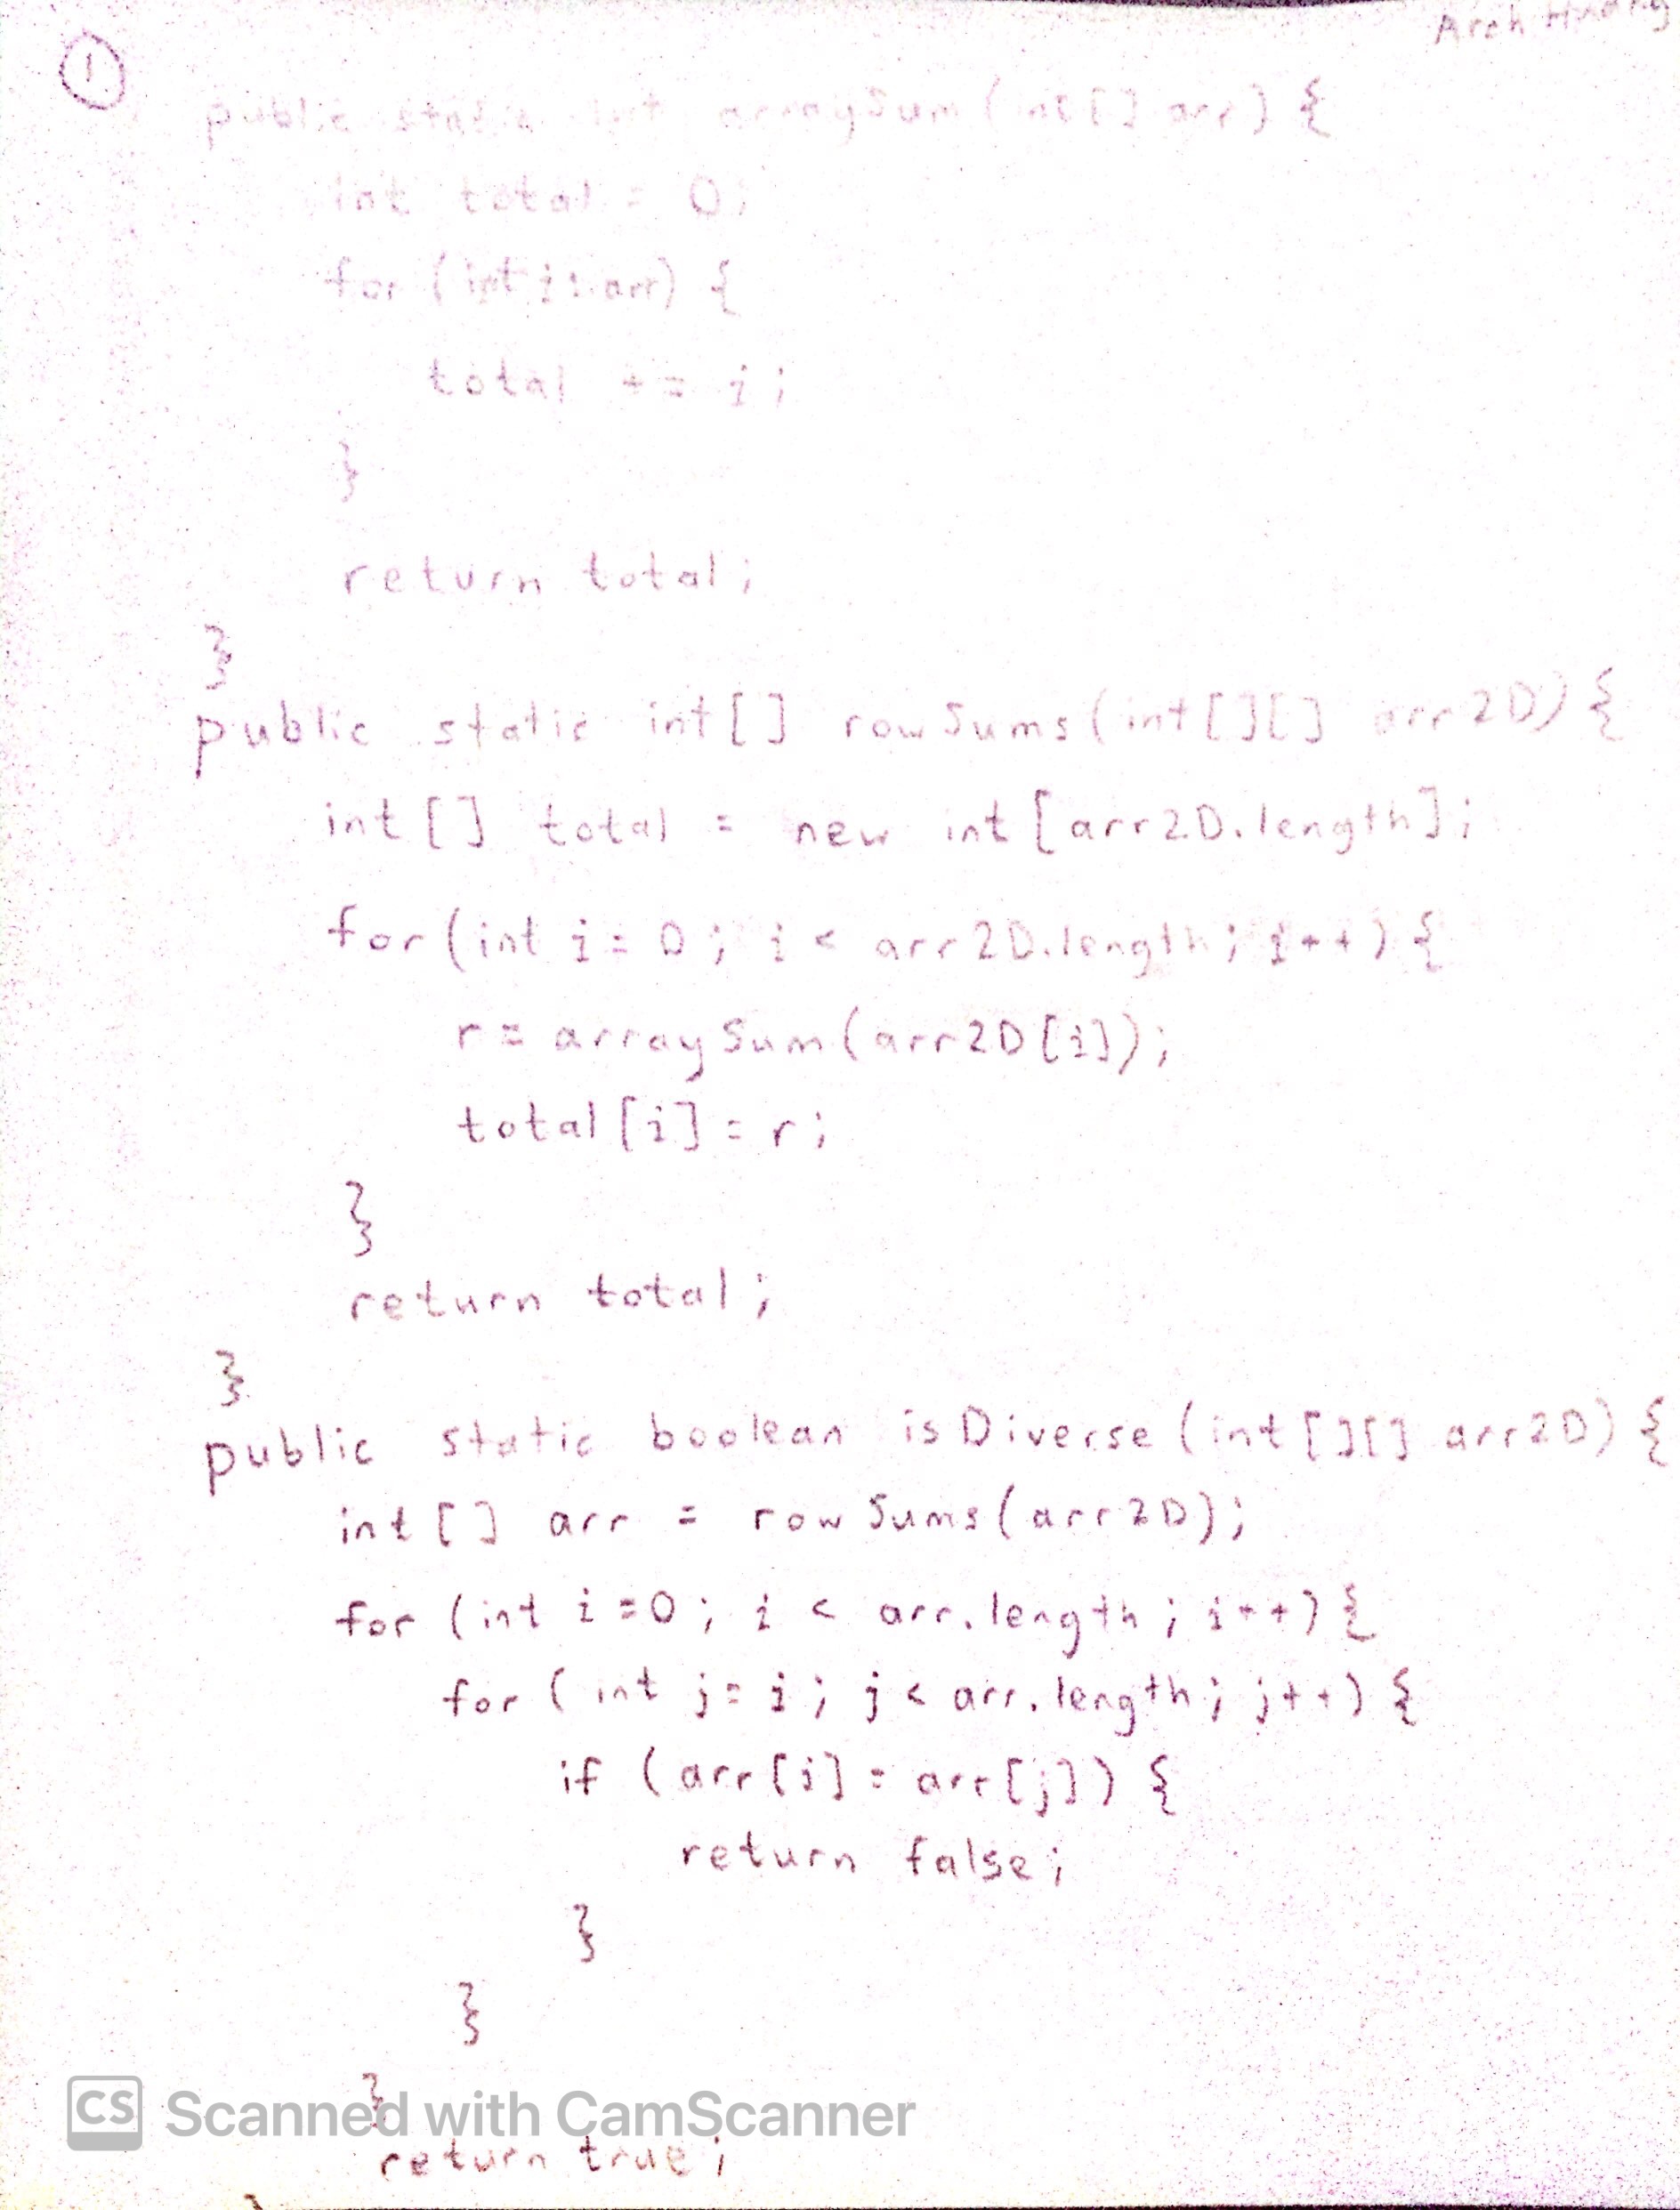 Arch
1
public static int arraySum(int[] arr) {
int total = 0;
for (int i : arr) {
total += i;
}
return total;
}
public static int[] rowSums(int[][] arr2D) {
int[] total = new int[arr2D.length];
for(int i = 0; i < arr2D.length; i++) {
r = arraySum(arr2D[i]);
total[i] = r;
}
return total;
}
public static boolean isDiverse(int[][] arr2D) {
int[] arr = rowSums(arr2D);
for (int i = 0; i < arr.length; i++) {
for (int j = i; j < arr.length; j++) {
if (arr[i] = arr[j]) {
return false;
}
}
}
CS Scanned with CamScanner
return true;
}